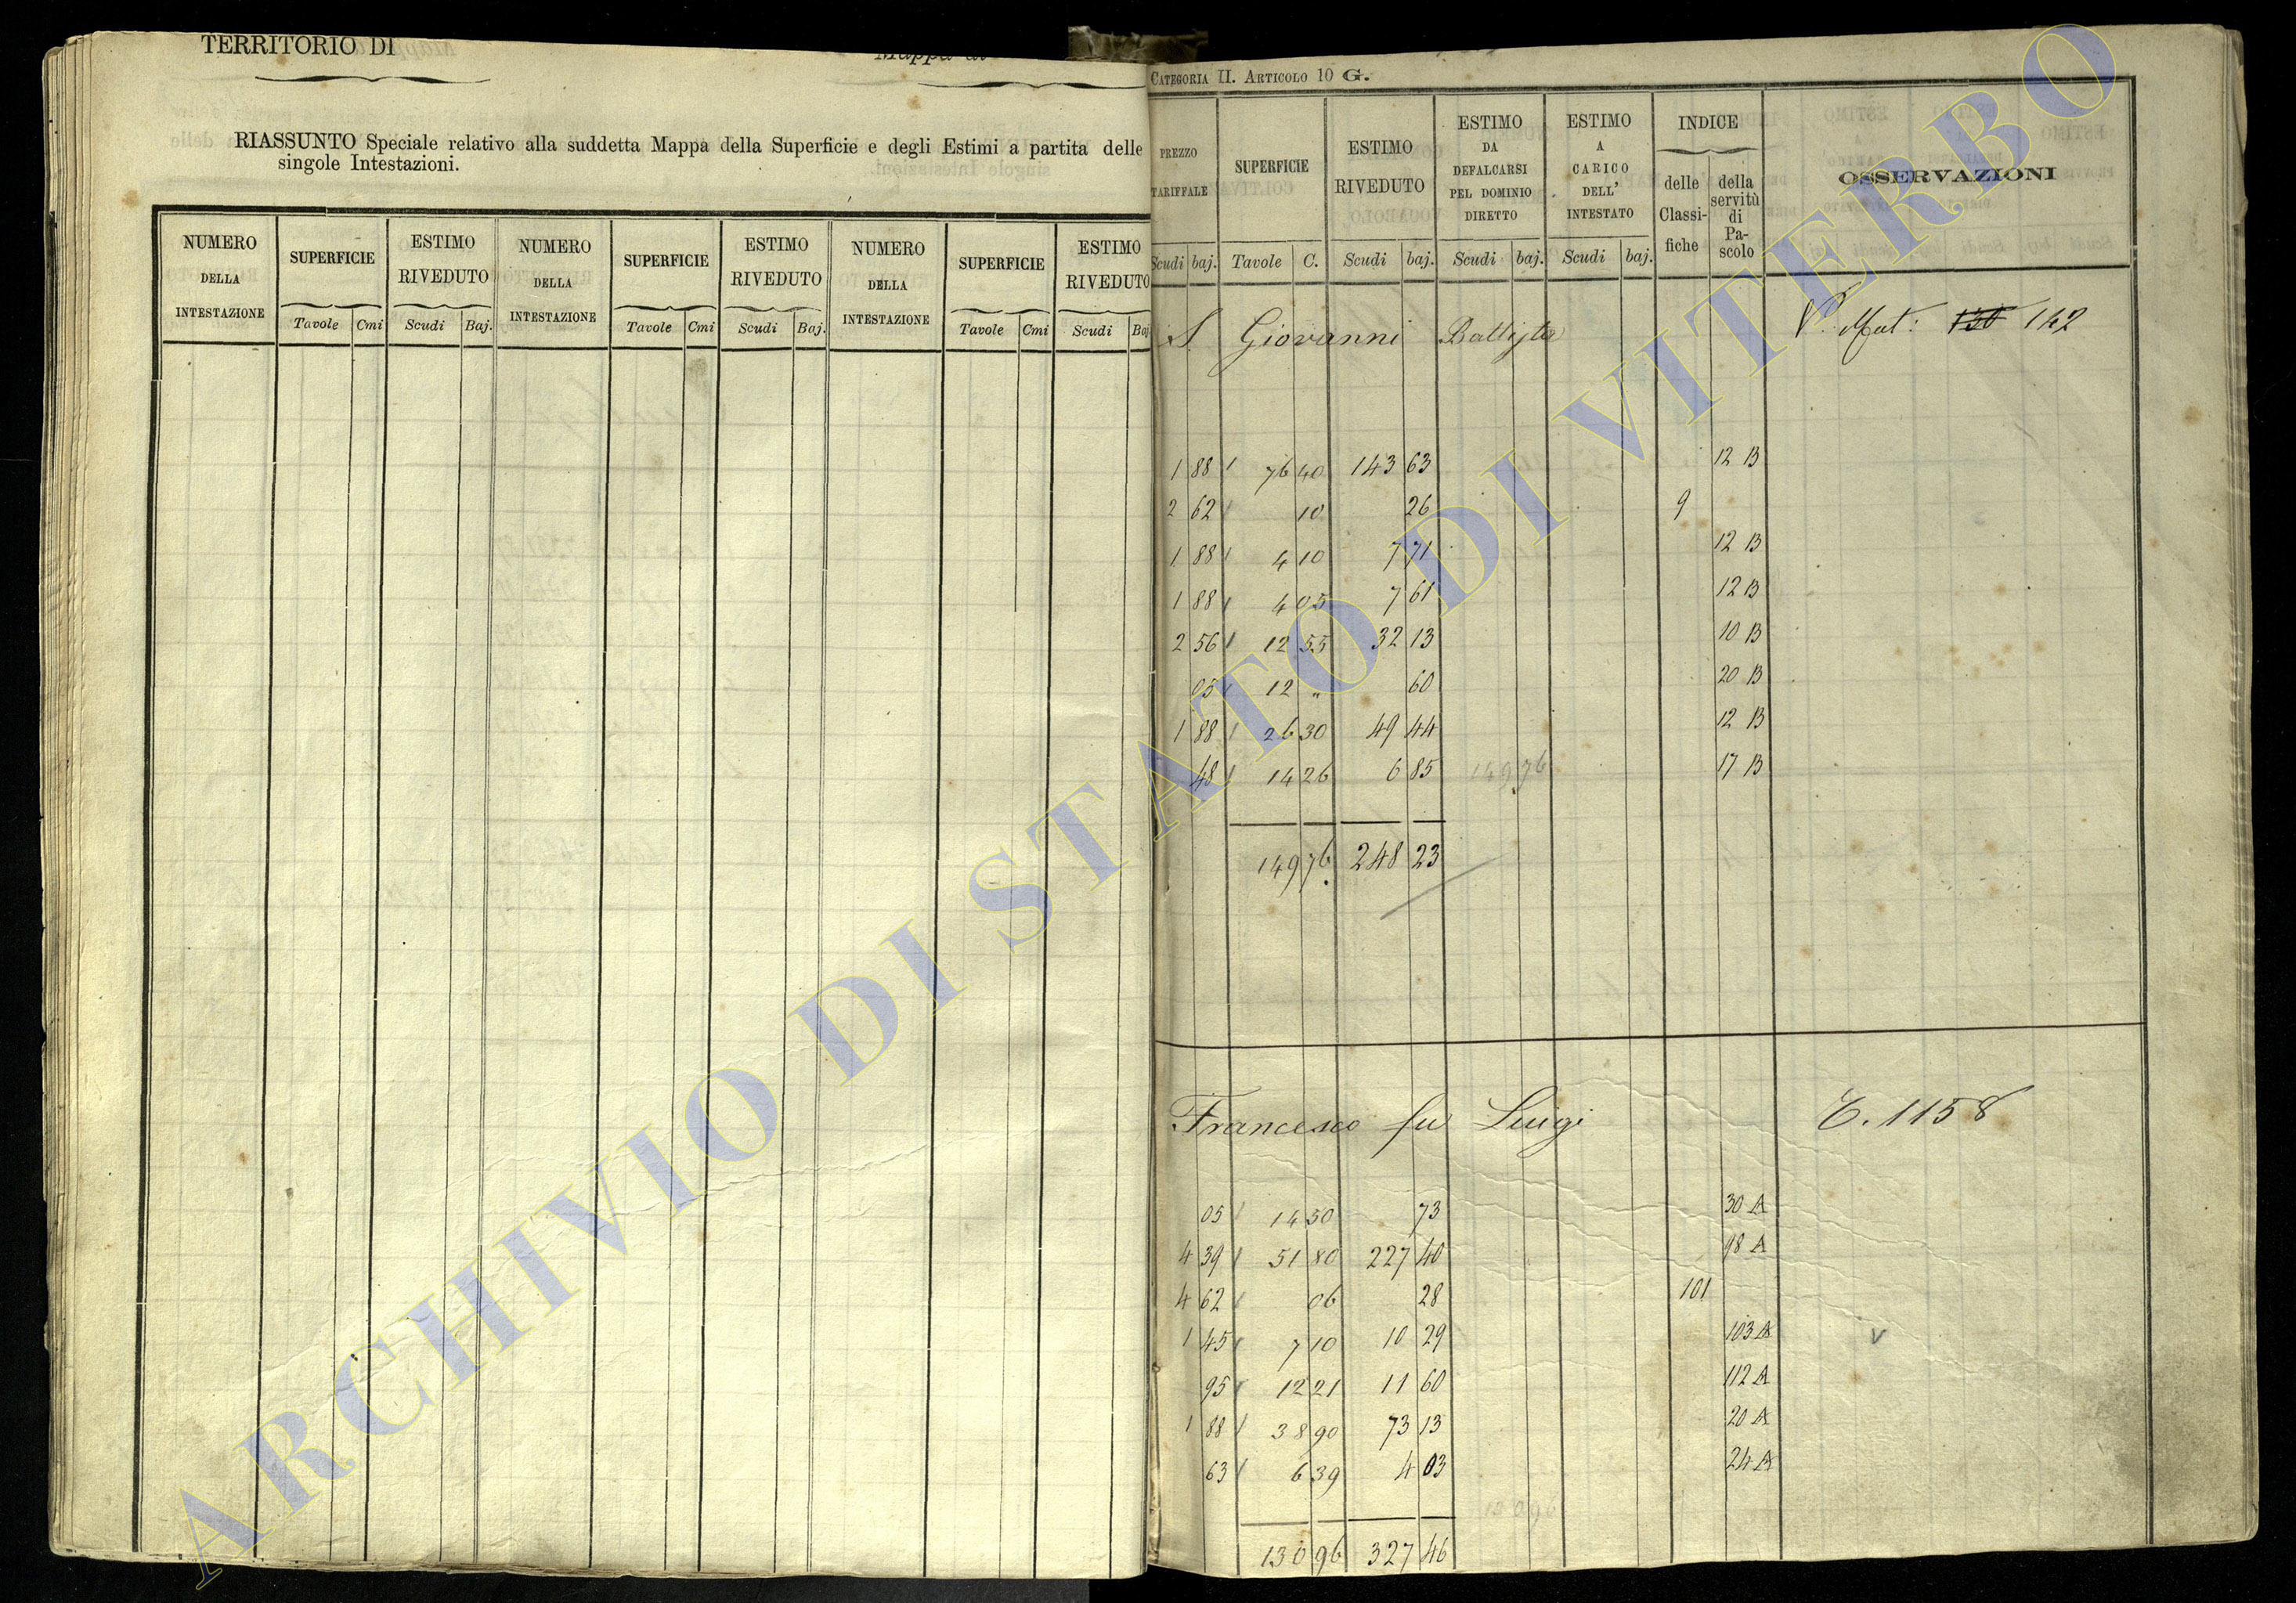 TERRITORIO DI
RIASSUNTO Speciale relativo alla suddetta Mappa della Superficie e degli Estimi a partita delle
singole Intestazioni.
NUMERO DELLA INTESTAZIONE SUPERFICIE ESTIMO RIVEDUTO NUMERO DELLA INTESTAZIONE SUPERFICIE ESTIMO RIVEDUTO NUMERO DELLA INTESTAZIONE SUPERFICIE ESTIMO RIVEDUTO
Tavole Cmi Scudi Baj. Tavole Cmi Scudi Baj. Tavole Cmi Scudi Baj
CATEGORIA II. ARTICOLO 10 G.
PREZZO TARIFFALE SUPERFICIE ESTIMO RIVEDUTO ESTIMO DA DEFALCARSI PEL DOMINIO DIRETTO ESTIMO A CARICO DELL' INTESTATO INDICE delle Classi- fiche della servitù di Pa- scolo OSSERVAZIONI
Scudi baj. Tavole C. Scudi baj. Scudi baj. Scudi baj.
S. Giovanni Battista V. Mut: 130 142
1 88 76 40 143 63 12 B
2 62 10 26 9
1 88 4 10 7 71 12 B
1 88 4 05 7 61 12 B
2 56 12 55 32 13 10 B
05 12 " 60 20 B
1 88 26 30 49 44 12 B
48 14 26 6 85 149 76 17 B
149 76 248 23
Francesco fu Luigi C. 1158
05 14 50 73 30 A
4 39 51 80 227 40 98 A
4 62 06 28 101
1 45 7 10 10 29 103 A V
95 12 21 11 60 112 A
1 88 38 90 73 13 20 A
63 6 39 4 03 24 A
130 96
130 96 327 46
ARCHIVIO DI STATO DI VITERBO